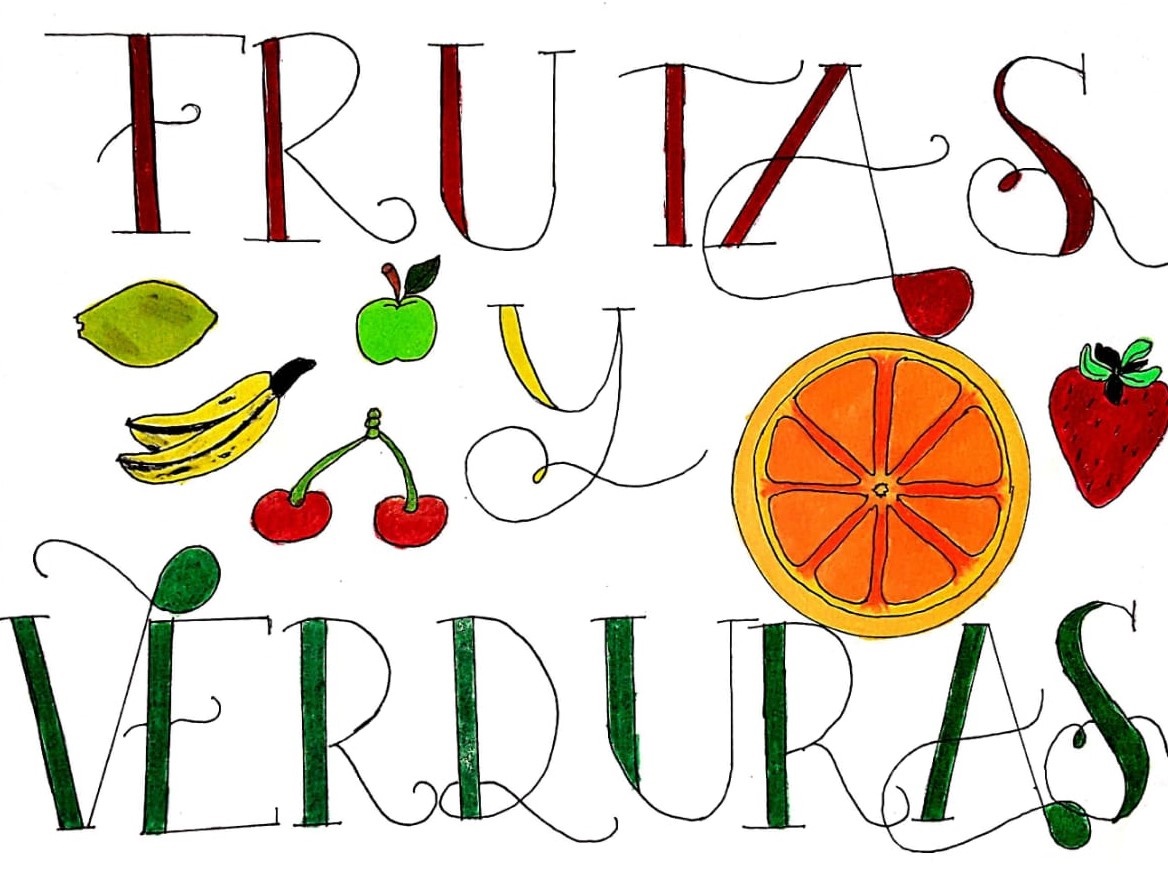 FRUTAS
y
VERDURAS